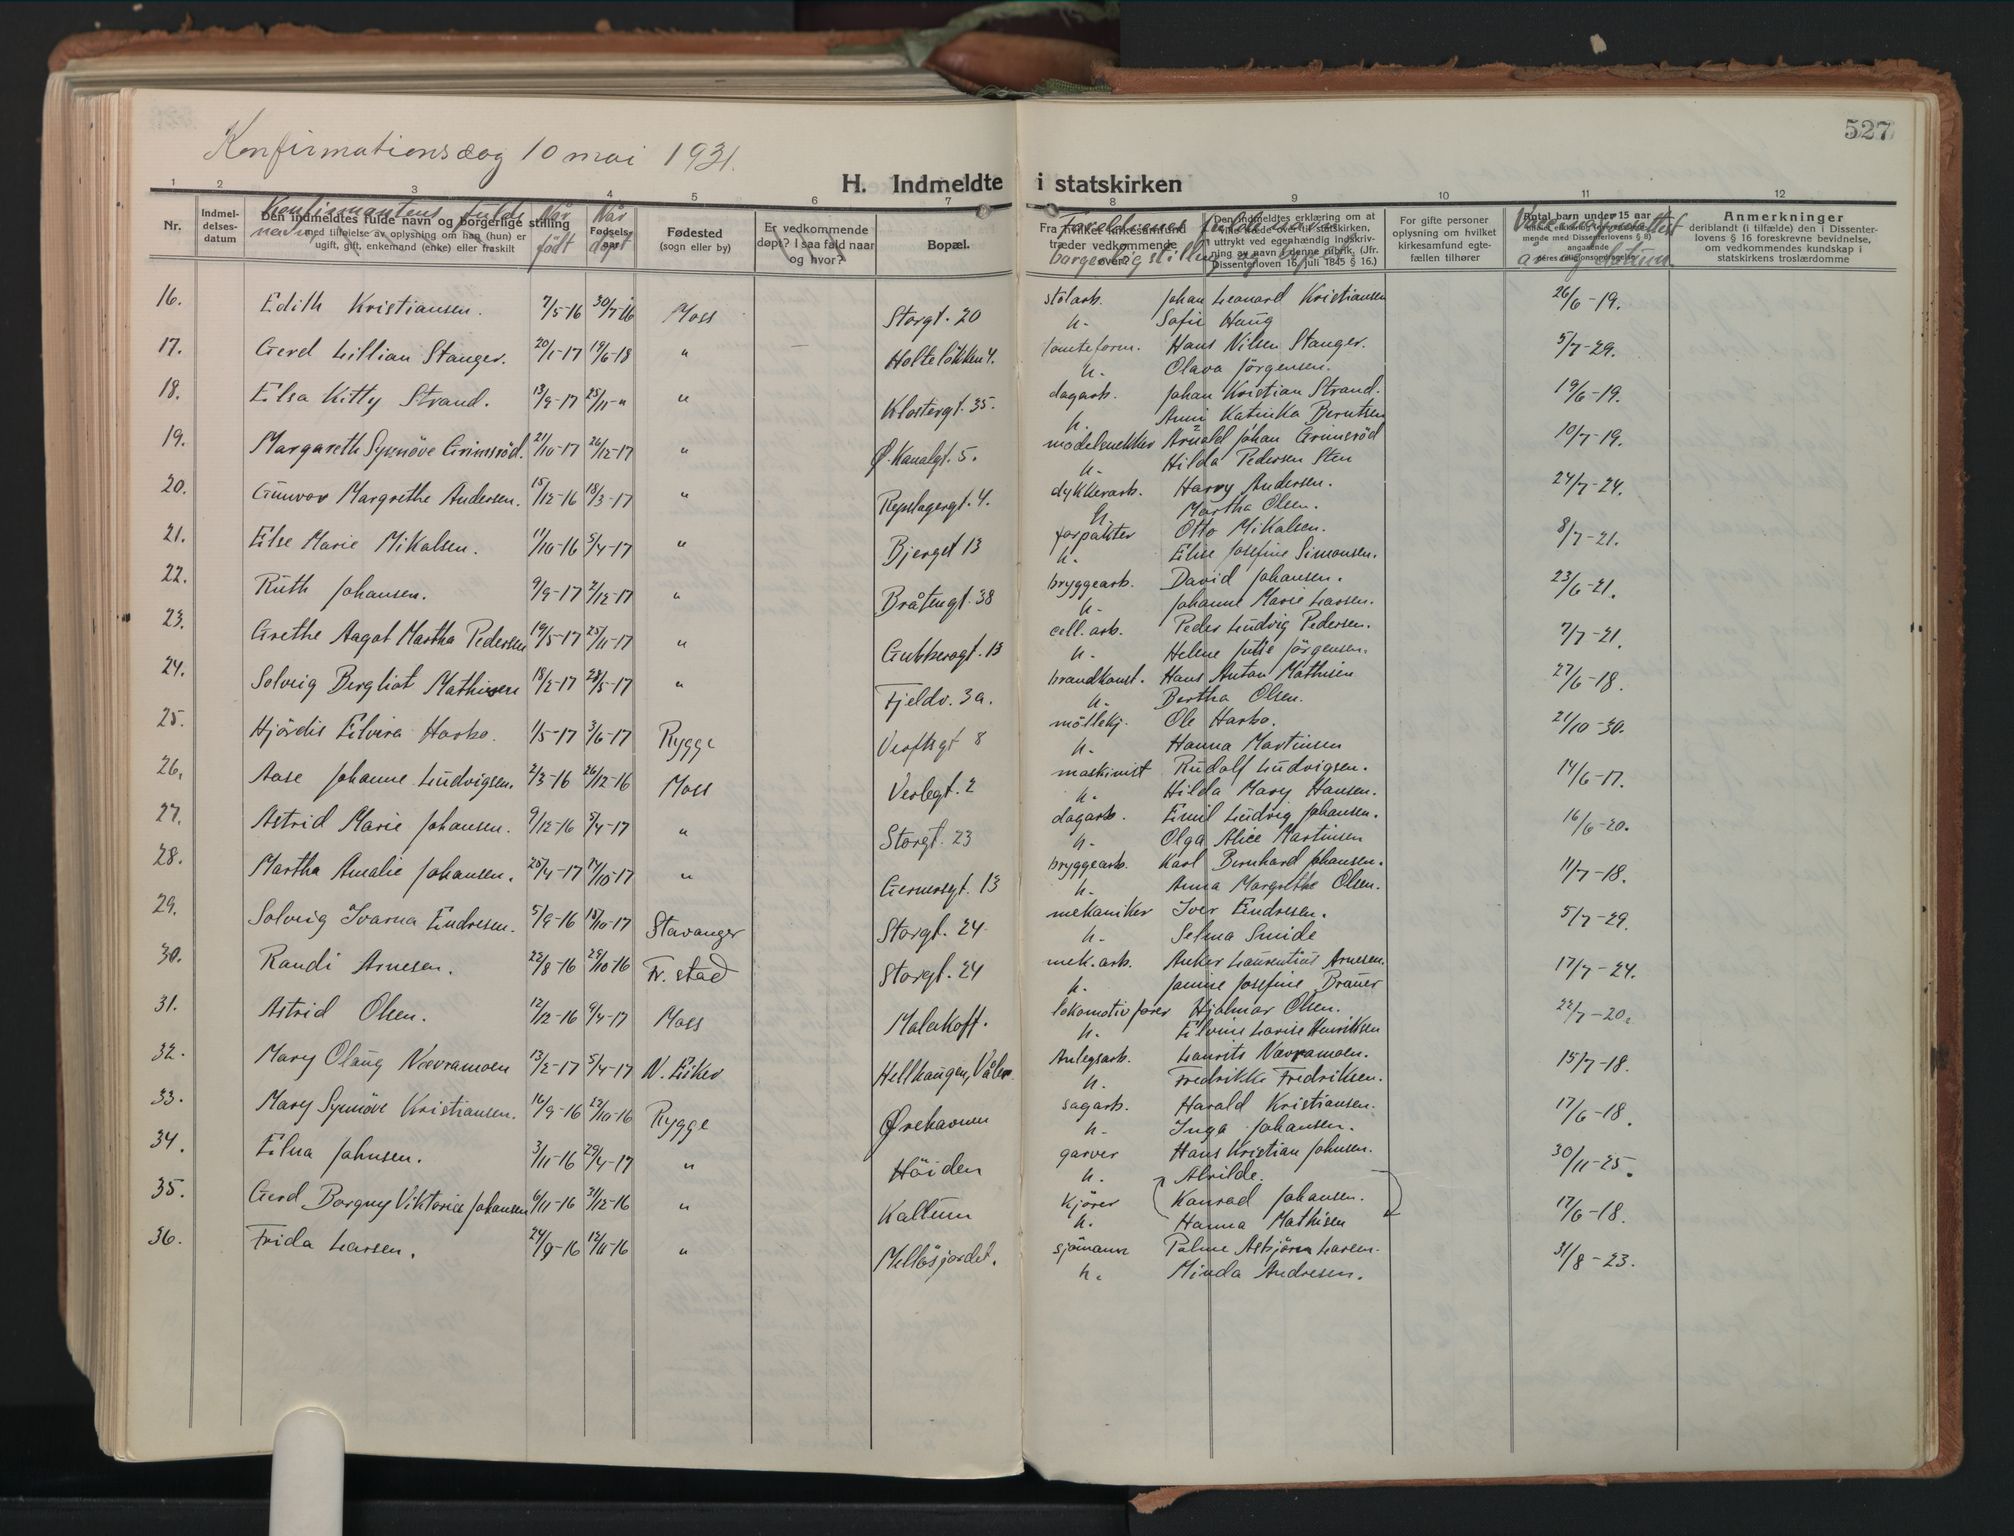 527
Konfirmationsdag 10 mai 1931.
H. Indmeldte i statskirken
1 2 3 4 5 6 7 8 9 10 11 12
Nr.
Indmel-
delses-
datum
Den indmeldtes fulde navn og borgerlige stilling
med tilføielse av oplysning om han (hun) er
ugift, gift, enkemand (enke) eller fraskilt
Konfirmantens fulde
navn
Når
født
Fødsels-
Når
døpt
Fødested
(sogn eller by)
Er vedkommende
døpt? I saa fald naar
og hvor?
Bopæl.
Fra hvilket kirkesamfund
træder vedkommende
over?
Forældrenes fulde navn
borgerlig stilling
Den indmeldtes erklæring om at
ville træde over i statskirken,
uttrykt ved egenhændig indskriv-
ning av navn i denne rubrik. (Jfr.
Dissenterloven 16. juli 1845 § 16.)
For gifte personer
oplysning om hvilket
kirkesamfund egte-
fællen tilhører
Antal barn under 15 aar
mende med Dissenterlovens § 8)
angaaende
deres religionsopdragelse
Anmerkninger
deriblandt (i tilfælde) den i Dissenter-
lovens § 16 foreskrevne bevidnelse,
om vedkommendes kundskap i
statskirkens troslærdomme
16. Edith Kristiansen. 7/5-16 30/7-16 Moss Storgt. 20 stølarb. Johan Leonard Kristiansen 26/6-19.
h. Sofie Haug
17. Gerd Lillian Stanger. 20/1-17 19/6-18 " Holteløkken 4. tomteform. Hans Nilsen Stanger. 5/7-29.
h. Olava Jörgensen.
18. Elsa Kitty Strand. 13/9-17 25/11-" " Klostergt. 35. dagarb. Johan Kristian Strand. 19/6-19.
h. Anni Katinka Berntsen
19. Margareth Synnöve Grimsröd. 21/10-17 26/12-17 " Ø. Kanalgt. 5. modelsnekker Arnold Johan Grimsröd 10/7-19.
h. Hilda Pedersen Sten
20. Gunvor Margrethe Andersen. 15/12-16 18/3-17 " Repslagergt. 4. dykkerarb. Harry Andersen. 24/7-24.
h. Martha Olsen.
21. Else Marie Mikalsen. 11/10-16 5/4-17 " Bjerget 13 forpakter Otto Mikalsen. 8/7-21.
h. Elise Josefine Simonsen.
22. Ruth Johansen. 9/9-17 2/12-17 " Bråtengt. 38 bryggearb. David Johansen. 23/6-21.
h. Johanne Marie Larsen.
23. Grethe Aagot Martha Pedersen 19/5-17 25/11-17 " Gubberogt. 13 cell. arb. Peder Ludvig Pedersen. 7/7-21.
h. Helene Julie Jörgensen.
24. Solveig Bergliot Mathisen 18/2-17 28/5-17 " Fjeldv. 3a. brandkonst. Hans Anton Mathisen 27/6-18.
h. Bertha Olsen.
25. Hjördis Elvira Harbo. 1/5-17 3/6-17 Rygge Verftsgt 8 möllekj. Ole Harbo. 21/10-30.
h. Hanna Martinsen
26. Aase Johanne Ludvigsen. 2/3-16 26/12-16 Moss Verlegt. 2 maskinist Rudolf Ludvigsen. 14/6-17.
h. Hilda Mary Hansen.
27. Astrid Marie Johansen. 9/12-16 5/4-17 " Storgt. 23 dagarb. Emil Ludvig Johansen. 16/6-20.
h. Olga Alice Martinsen
28. Martha Amalie Johansen. 25/4-17 14/10-17 " Gernersgt. 13 bryggearb. Karl Bernhard Johansen. 11/7-18.
h. Anna Margrethe Olsen.
29. Solveig Ivarna Endresen. 5/9-16 15/10-17 Stavanger Storgt. 24 mekaniker Iver Endresen. 5/7-29.
h. Selma Smide
30. Randi Arnesen. 22/8-16 29/10-16 Fr. stad Storgt. 24 mek. arb. Anker Laurentius Arnesen. 17/7-24.
h. Janine Josefine Brauer
31. Astrid Olsen. 12/12-16 9/4-17 Moss Malakoff. lokomotivförer Hjalmar Olsen. 22/7-20.
h. Elvine Lovise Henriksen
32. Mary Olaug Nævramoen 13/2-17 5/4-17 N. Eiker Hellhaugen, Våler Anlegsarb. Laurits Nævramoen. 15/7-18.
h. Fredrikke Fredriksen.
33. Mary Synnöve Kristiansen. 16/9-16 22/10-16 Rygge Ørehavnen sagarb. Harald Kristiansen. 17/6-18.
h. Inga Johansen.
34. Elna Johnsen. 3/11-16 29/4-17 " Höiden garver Hans Kristian Johnsen. 30/11-25.
h. Alvilde.
35. Gerd Borgny Viktoria Johansen 6/11-16 31/12-16 " Kallum kjörer Konrad Johansen. 17/6-18.
h. Hanna Mathisen
36. Frida Larsen. 24/9-16 12/11-16 " Mellösjordet. sjömann Palme Asbjörn Larsen. 31/8-23.
h. Minda Andresen.